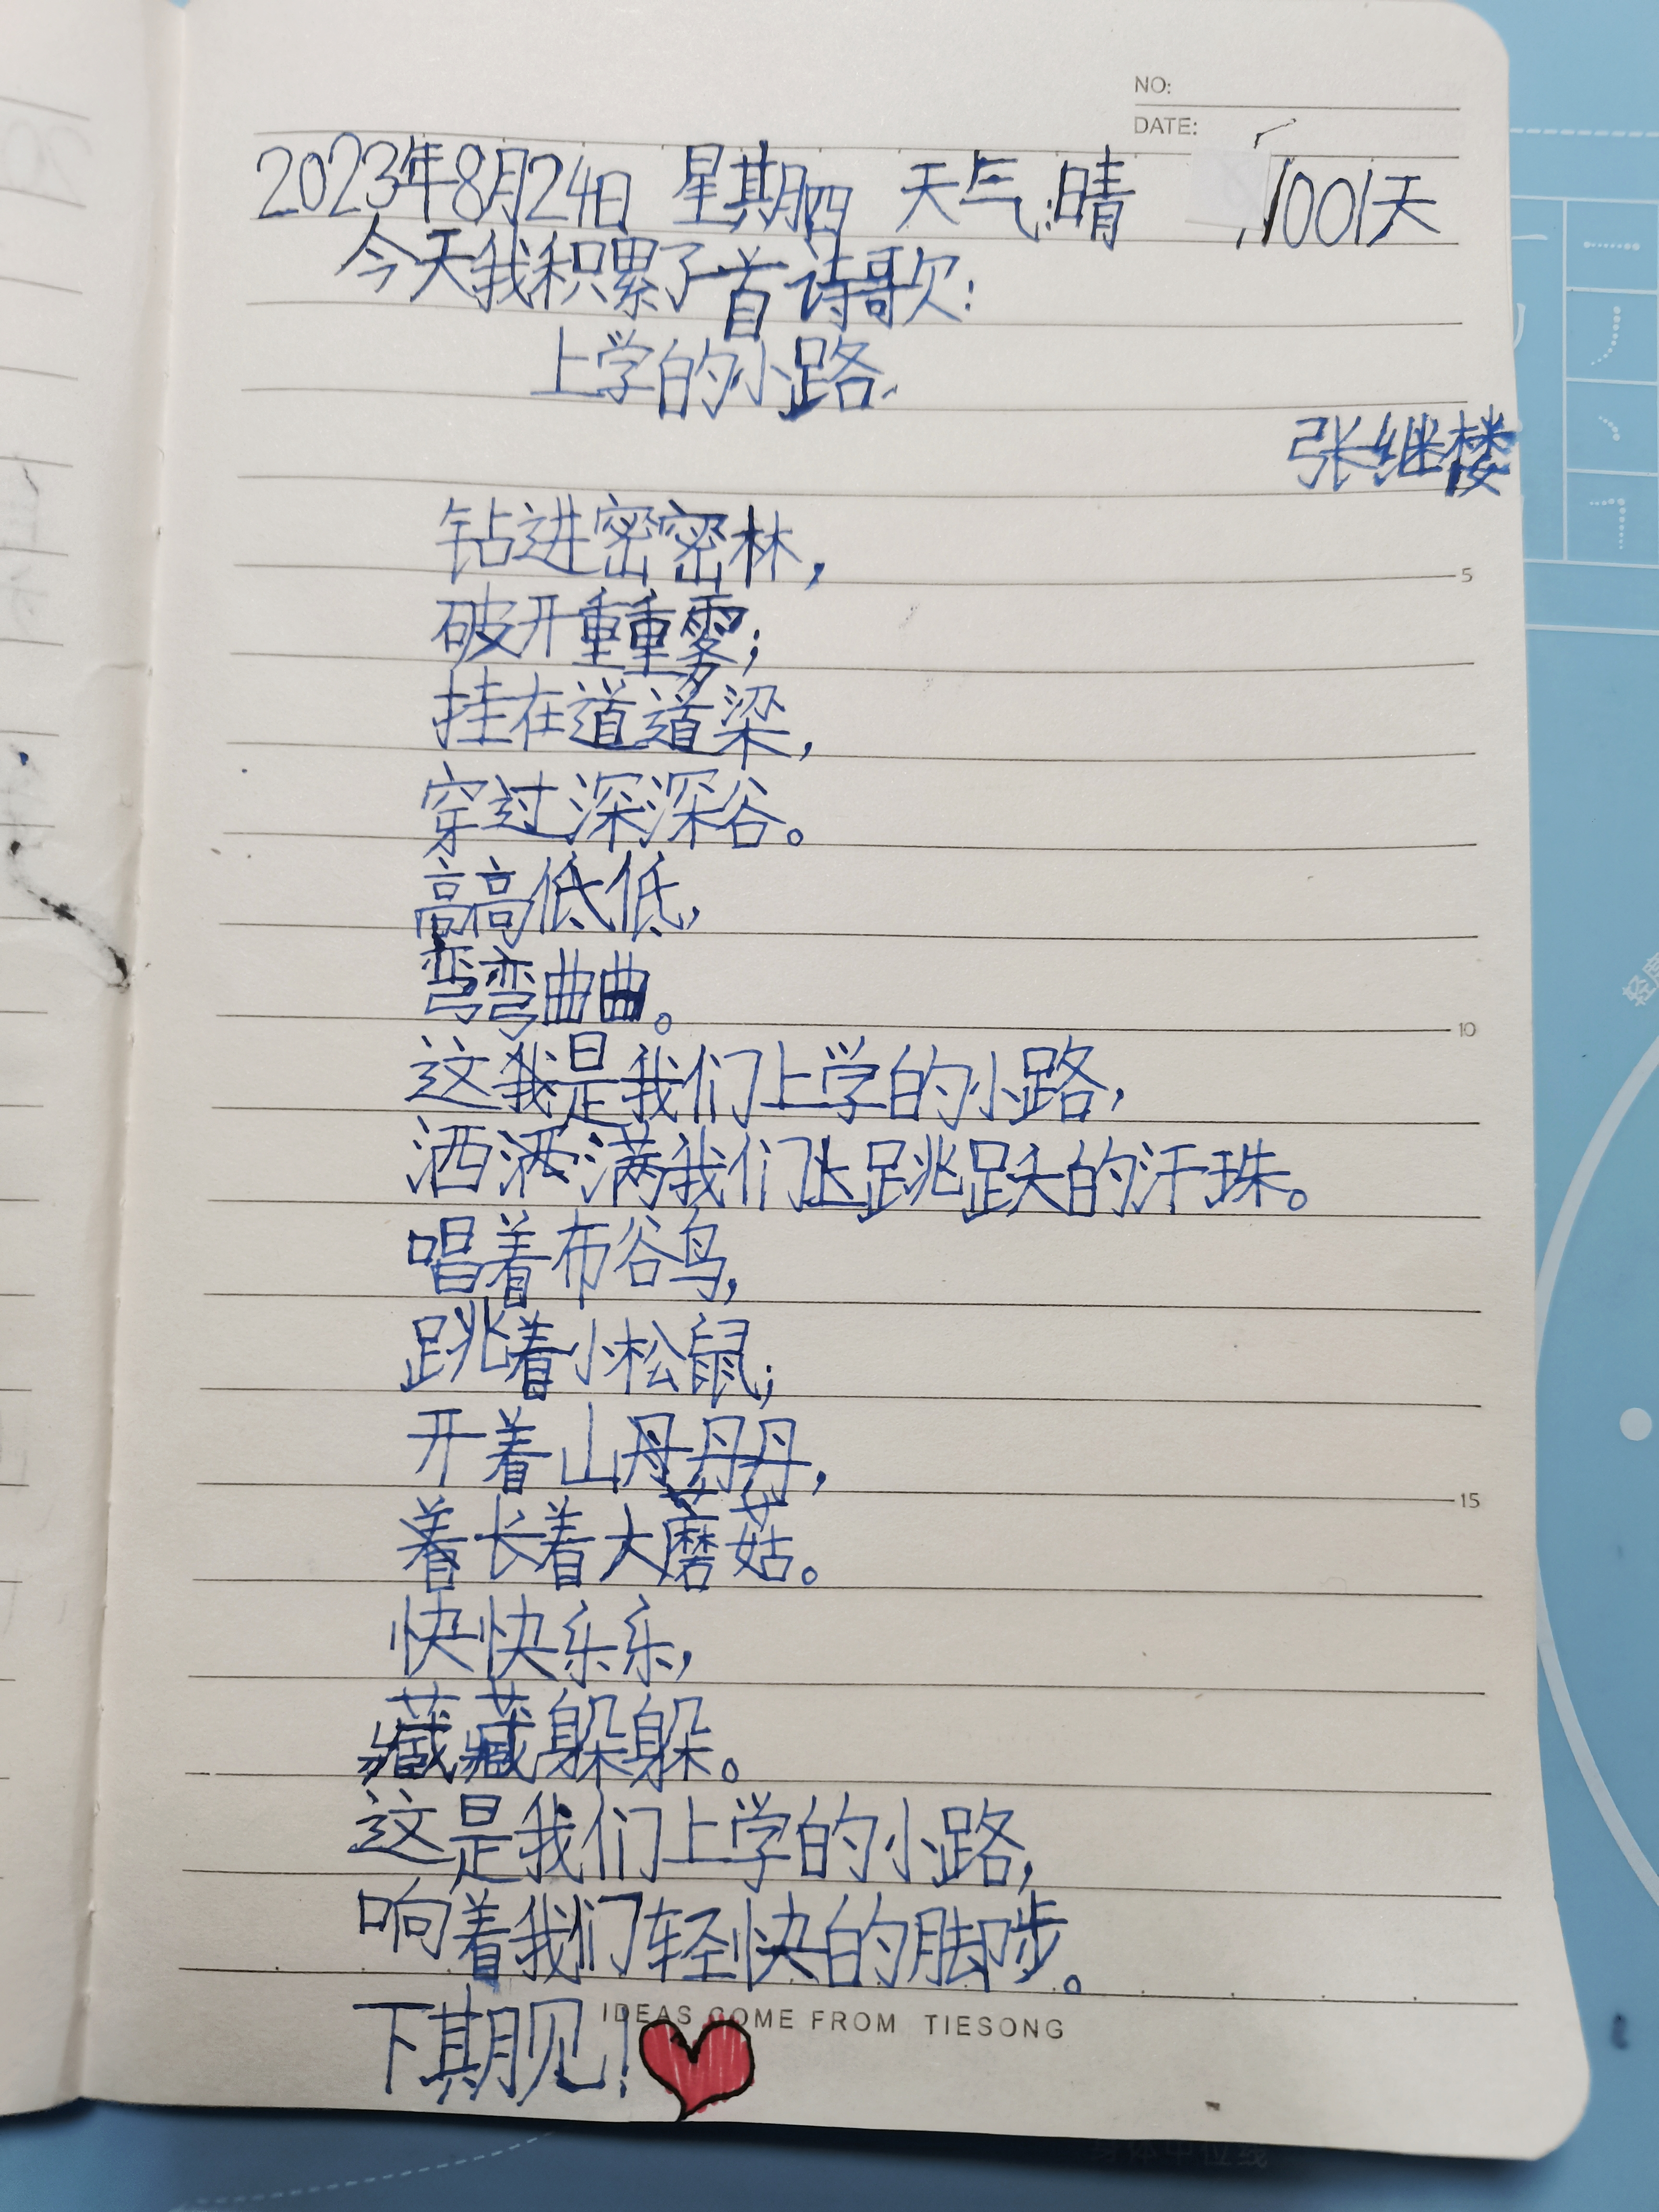 NO:
DATE:
2023年8月24日 星期四 天气:晴 1001天
今天我积累了一首诗歌:
上学的小路
张继楼
钻进密密林,
破开重重雾;
挂在道道梁,
穿过深深谷。
高高低低,
弯弯曲曲。
5
10
这我是我们上学的小路,
洒洒满我们上跳跃的汗珠。
唱着布谷鸟,
跳着小松鼠;
开着山丹丹丹,
15
着长着大蘑菇。
快快乐乐,
藏藏躲躲。
这是我们上学的小路,
响着我们轻快的脚步。
IDEAS COME FROM TIESONG
下期见!
身体中位线
轻度